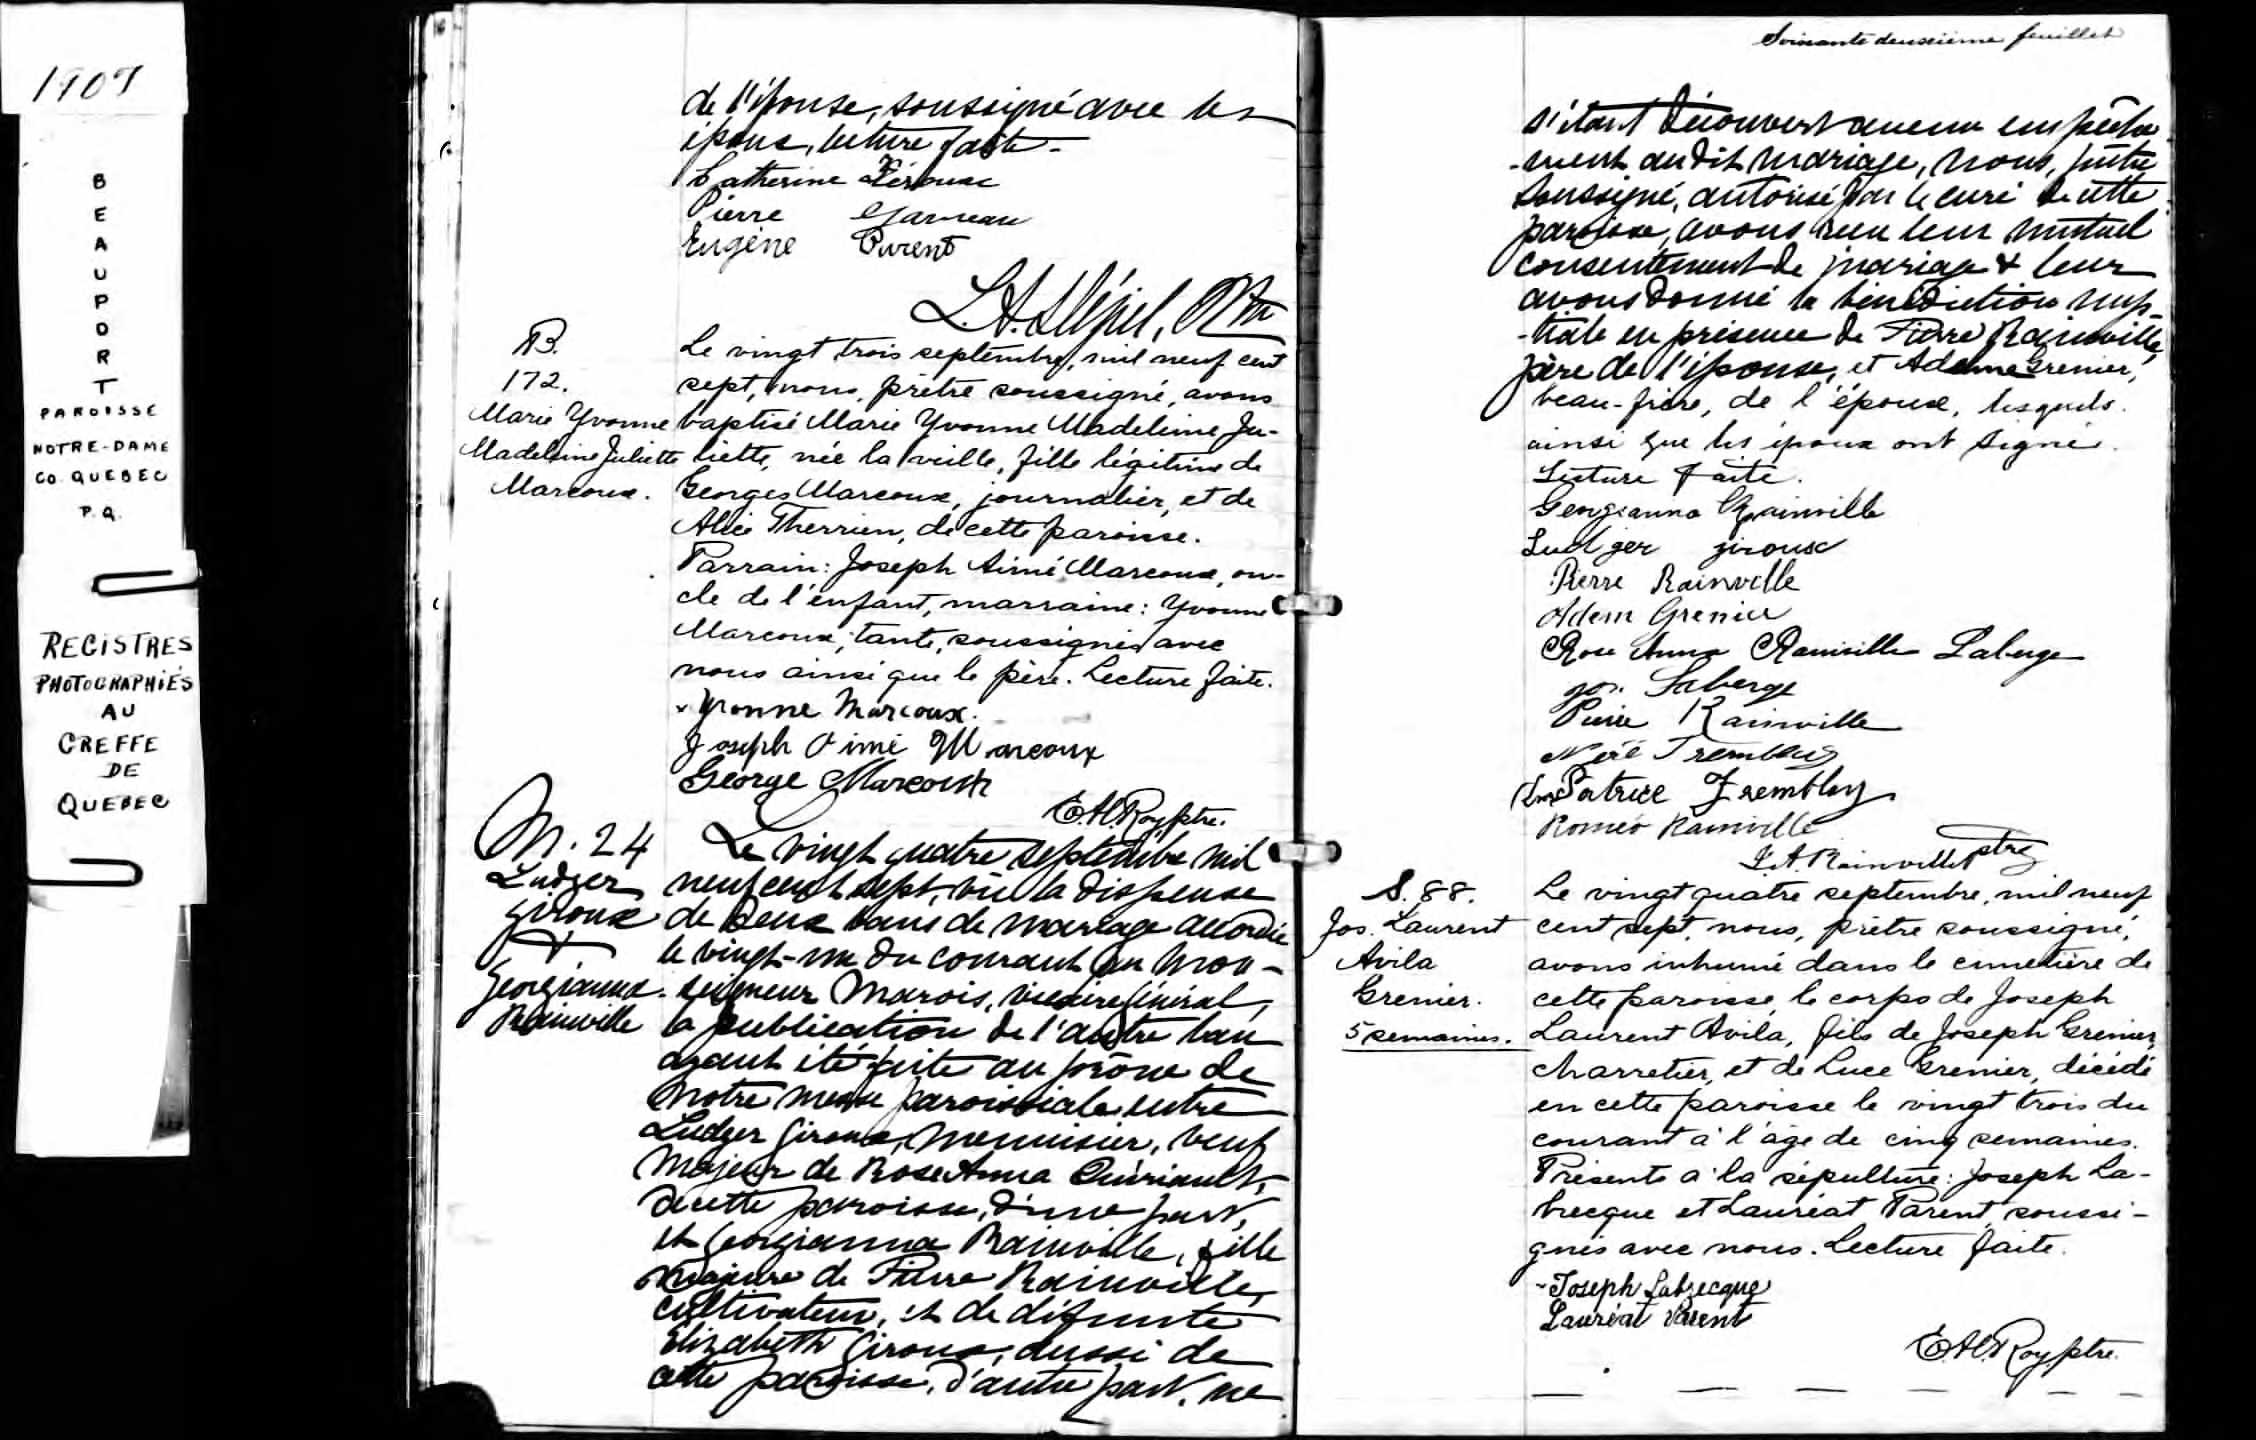 1907
BEAUPORT
PAROISSE
NOTRE-DAME
CO. QUEBEC
P.Q.
REGISTRES
PHOTOGRAPHIÉS
AU
GREFFE
DE
QUEBEC
de l'épouse, soussigné avec les
époux, lecture faite -
Catherine
Pierre Garneau
Eugène Parent
L.A.
B.
172.
Marie Yvonne
Madeleine Juliette
Marcoux.
Le vingt trois septembre, mil neuf cent
sept, nous, prêtre soussigné, avons
baptisé Marie Yvonne Madeleine Ju-
liette, née la veille, fille légitime de
Georges Marcoux, journalier, et de
Alice Therrien, de cette paroisse.
Parrain: Joseph Aimé Marcoux, on-
cle de l'enfant, marraine: Yvonne
Marcoux, tante, soussignés avec
nous ainsi que le père. Lecture faite.
x Yvonne Marcoux.
Joseph Aimé Marcoux
George Marcoux
E.H. Roy ptre.
M. 24
Ludger
Giroux
&
Georgianna
Rainville
Le vingt quatre septembre mil
neuf cent sept, vu la dispense
de deux bans de mariage accordée
le vingt-un du courant par Mon-
seigneur Marois, vicaire Général,
la publication de l'autre ban
ayant été faite au prône de
notre messe paroissiale entre
Ludger Giroux, menuisier, veuf
majeur de Rose Anna
de cette paroisse, d'une part,
et Georgianna Rainville, fille
majeure de Pierre Rainville,
cultivateur, et de défunte
Elizabeth Giroux, aussi de
cette paroisse, d'autre part, ne
Soixante deuxième feuillet
s'étant découvert aucun empêche-
-ment au dit mariage, nous, prêtre
soussigné, autorisé par le curé de cette
paroisse, avons reçu leur mutuel
consentement de mariage & leur
avons donné la bénédiction nup-
-tiale en présence de Pierre Rainville,
père de l'épouse, et Adem Grenier,
beau-frère, de l'époux, lesquels
ainsi que les époux ont signé.
Lecture faite.
Georgianna Rainville
Ludger giroux
Pierre Rainville
Adem Grenier
Rose Anna Rainville Laberge
Jos. Laberge
Pierre Rainville
Noël Tremblay
Patrice Tremblay
Roméo Rainville
J.A. Rainville ptre
S. 88.
Jos. Laurent
Avila
Grenier.
5 semaines.
Le vingt quatre septembre, mil neuf
cent sept, nous, prêtre soussigné,
avons inhumé dans le cimetière de
cette paroisse, le corps de Joseph
Laurent Avila, fils de Joseph Grenier,
charretier, et de Luce Grenier, décédé
en cette paroisse le vingt trois du
courant à l'âge de cinq semaines.
Présents à la sépulture: Joseph La-
brecque et Lauréat Parent, soussi-
gnés avec nous. Lecture faite.
Joseph Labrecque
Lauréat Parent
E.H. Roy ptre.